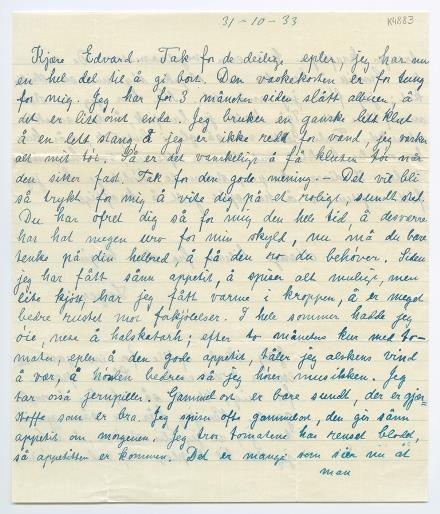 31-10-33
K4883
Kjære Edvard. Tak for de deilige epler, jeg har nu
en hel del til å gi bort. Den vaskekosten er for tung
for mig. Jeg har for 3 måneter siden slått albuen, å
det er litt ømt enda. Jeg bruker en ganske lett klut
å en lett stang å jeg er ikke redd for vand, jeg vasker
alt mit tøi. Så er det vanskelig å få kluten tør når
den sitter fast. Tak for den gode mening – Det vil bli
så trykt for mig å vite dig på et roligt, sundt sted.
Du har ofret dig så for mig den hele tid å desverre
har hat megen uro for min skyld, nu må du bare
tenke på din helbred å få den ro du behøver. Siden
jeg har fått sånn appetit, å spiser alt mulig, men
lite kjøtt, har jeg fått varme i kroppen, å er meget
bedre rustet mot forkjølelser. I hele sommer hadde jeg
øie, nese å halskatarh; efter to måneters kur med to-
mater, epler å den gode appetit, tåler jeg alskens vind
å vær, å hørslen bedres så jeg hører musikken. Jeg
tar også jernpiller. Gammelost er bare sundt, der er gjær-
stoffe som er bra. Jeg spiser ofte gammelost, den gir sånn
appetit om morgenen. Jeg tror tomatene har renset blodet,
så appetitten er kommen. Det er mange som sier nu at
man